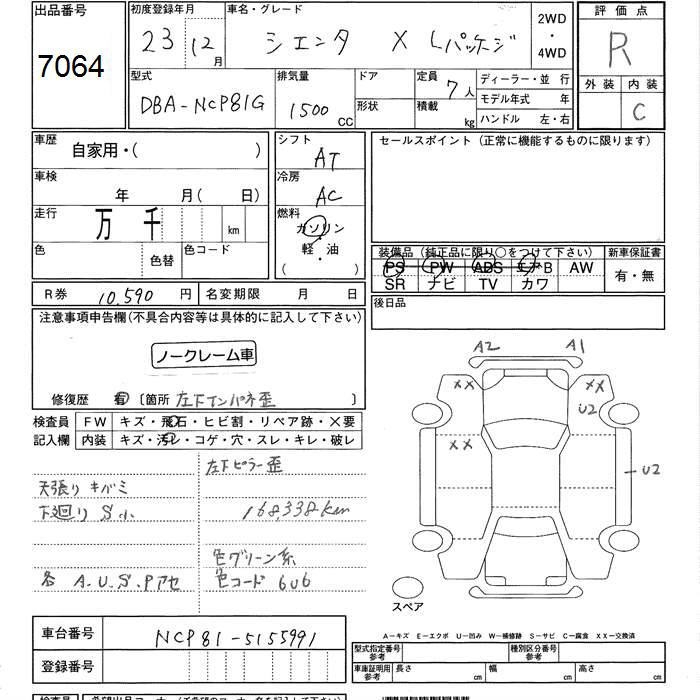 出品番号
7064
初度登録年月
23 12月
車名・グレード
シエンタ X Lパッケージ
2WD
・
4WD
評価点
R
外装 内装
C
型式
DBA-NCP81G
排気量
1500 CC
ドア
形状
定員 7人
積載 kg
ディーラー・並行
モデル年式 年
ハンドル 左・右
車歴
自家用・( )
車検
年 月( 日)
走行
万 千 km
色
色替
色コード
シフト
AT
冷房
AC
燃料
ガソリン
軽・油
( )
セールスポイント (正常に機能するものに限ります)
装備品 (純正品に限り○をつけて下さい)
PS PW ABS エアB AW
SR ナビ TV カワ
新車保証書
有・無
後日品
R券 10,590 円
名変期限 月 日
注意事項申告欄(不具合内容等は具体的に記入して下さい)
ノークレーム車
修復歴 有 〔箇所 左下インパネ歪 〕
検査員
記入欄
FW キズ・飛石・ヒビ割・リペア跡・×要
内装 キズ・汚レ・コゲ・穴・スレ・キレ・破レ
左下ピラー歪
天張り キバミ
下廻り S小
168,338km
色グリーン系
各 A.U.S.Pアセ
色コード 6U6
A2 A1
×× ××
U2
××
U2
スペア
A-キズ E-エクボ U-凹み W-補修跡 S-サビ C-腐食 XX-交換済
車台番号
NCP81-5155991
登録番号
型式指定番号
参考
種別区分番号
参考
車庫証明用
参考
長さ cm
幅 cm
高さ cm